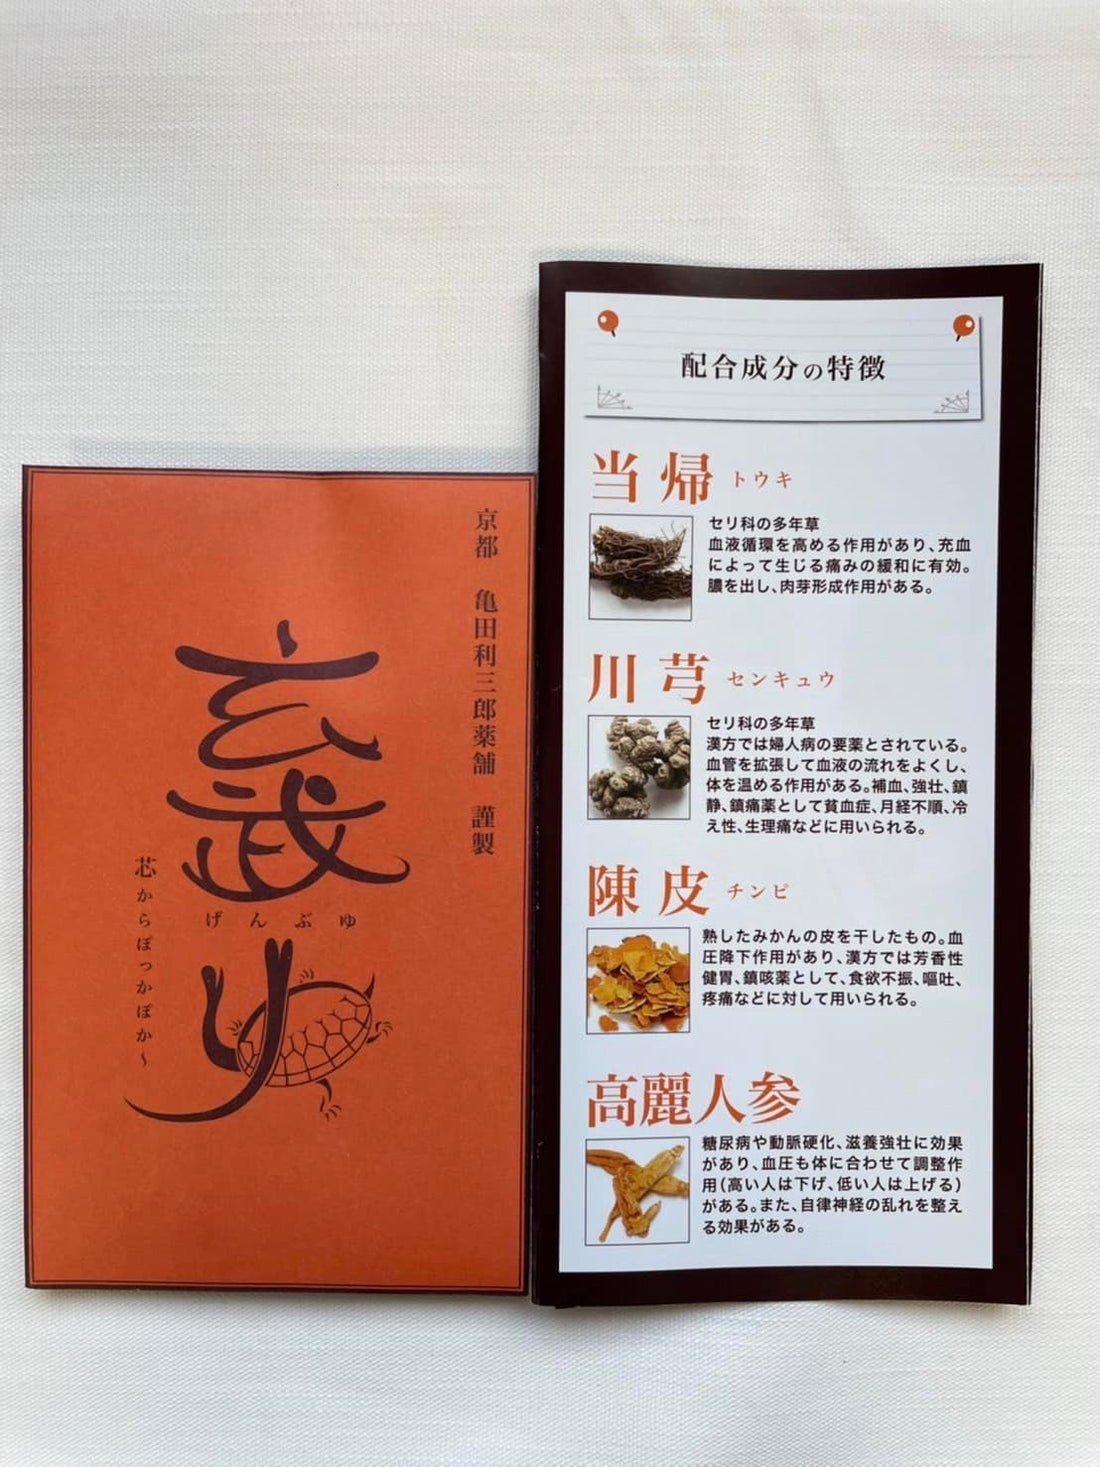 京都 亀田利三郎薬舗 謹製
玄武
げんぶゆ
芯からぽっかぽか〜
配合成分の特徴
当帰 トウキ
セリ科の多年草
血液循環を高める作用があり、充血
によって生じる痛みの緩和に有効。
膿を出し、肉芽形成作用がある。
川芎 センキュウ
セリ科の多年草
漢方では婦人病の要薬とされている。
血管を拡張して血液の流れをよくし、
体を温める作用がある。補血、強壮、鎮
静、鎮痛薬として貧血症、月経不順、冷
え性、生理痛などに用いられる。
陳皮 チンピ
熟したみかんの皮を干したもの。血
圧降下作用があり、漢方では芳香性
健胃、鎮咳薬として、食欲不振、嘔吐、
疼痛などに対して用いられる。
高麗人参
糖尿病や動脈硬化、滋養強壮に効果
があり、血圧も体に合わせて調整作
用(高い人は下げ、低い人は上げる)
がある。また、自律神経の乱れを整え
る効果がある。